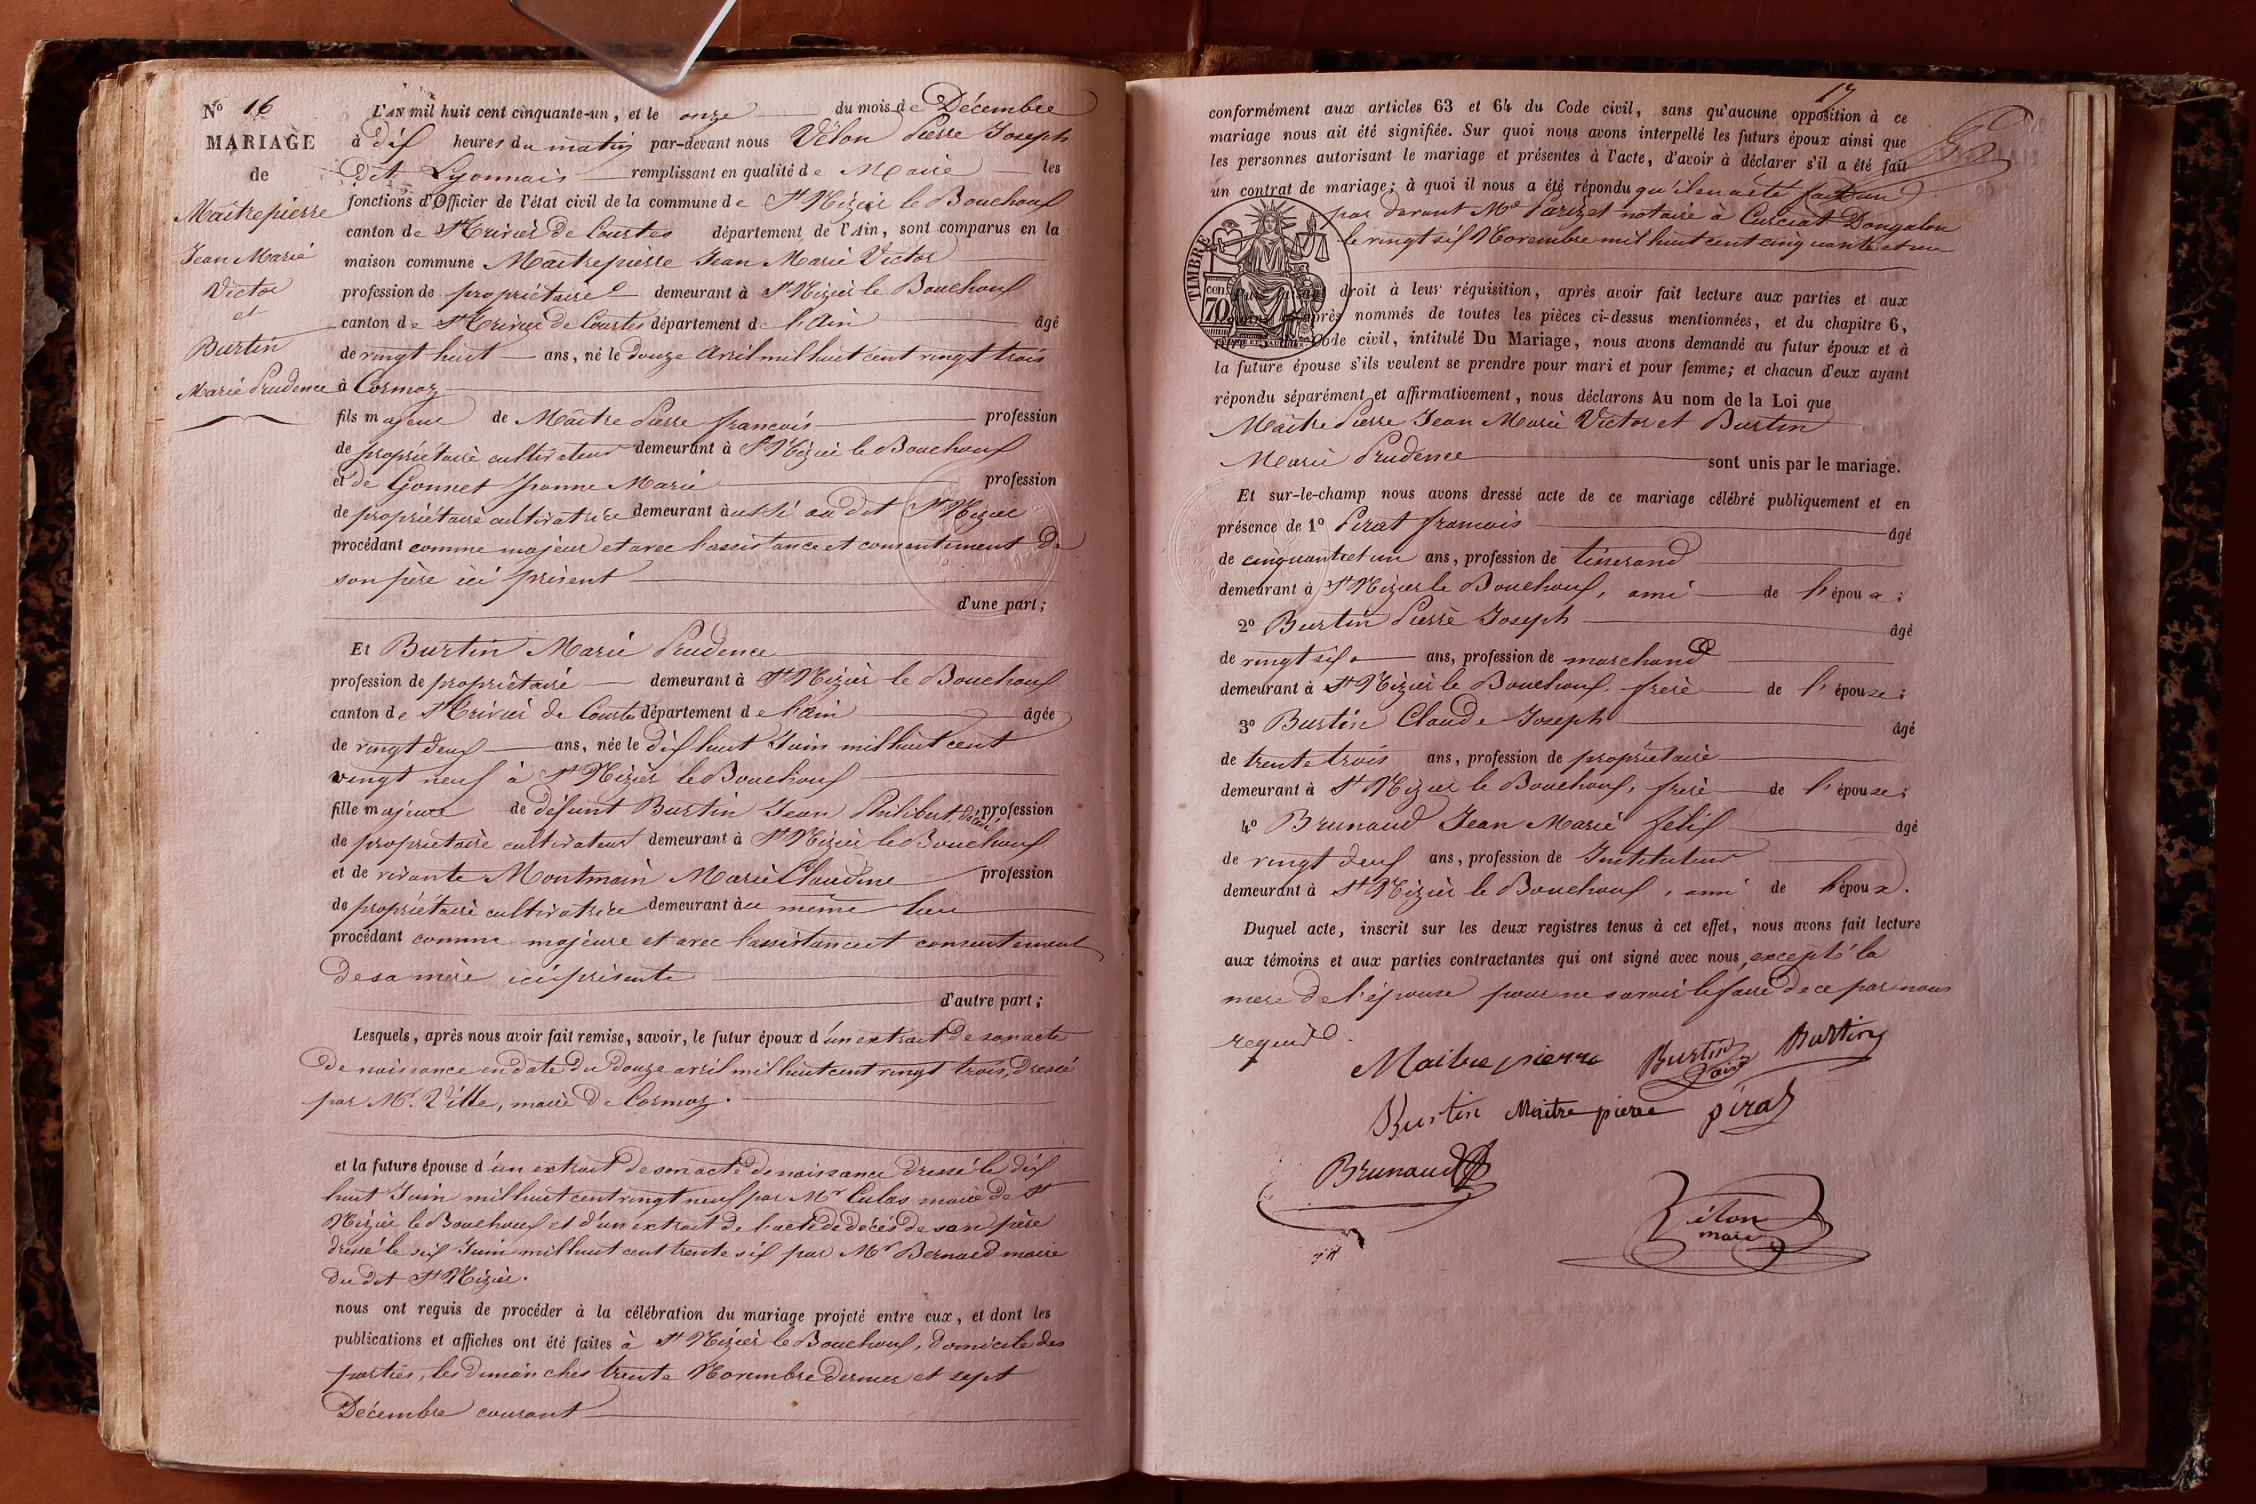 No 16
MARIAGE
de
Maitrepierre
Jean Marie
Victor
et
Burtin
Marie Prudence
L'AN mil huit cent cinquante-un, et le onze du mois de Décembre
à dix heures du matin par-devant nous Vélon Pierre Joseph
dit Lyonnais remplissant en qualité de Maire les
fonctions d'Officier de l'état civil de la commune de St Nizier le Bouchoux
canton de St Trivier de Courtes département de l'Ain, sont comparus en la
maison commune Maitrepierre Jean Marie Victor
profession de propriétaire demeurant à St Nizier le Bouchoux
canton de St Trivier de Courtes département de l'Ain âgé
de vingt huit ans, né le douze avril mil huit cent vingt trois
à Cormoz
fils majeur de Maitre Pierre françois profession
de propriétaire cultivateur demeurant à St Nizier le Bouchoux
et de Gonnet Marie profession
de propriétaire cultivatrice demeurant aussi au dit St Nizier
procédant comme majeur et avec l'assistance et consentement de
son père ici présent
d'une part;
Et Burtin Marie Prudence
profession de propriétaire demeurant à St Nizier le Bouchoux
canton de St Trivier de Courtes département de l'Ain âgée
de vingt deux ans, née le dix huit Juin mil huit cent
vingt neuf à St Nizier le Bouchoux
fille majeure de défunt Burtin Jean Philibert décédé profession
de propriétaire cultivateur demeurant à St Nizier le Bouchoux
et de vivante Montmain Marie Claudine profession
de propriétaire cultivatrice demeurant au même lieu
procédant comme majeure et avec l'assistance et consentement
de sa mère ici présente
d'autre part;
Lesquels, après nous avoir fait remise, savoir, le futur époux d'un extrait de son acte
de naissance en date du douze avril mil huit cent vingt trois, dressé
par Mr. Ville, maire de Cormoz.
et la future épouse d'un extrait de son acte de naissance dressé le dix
huit Juin mil huit cent vingt neuf par Mr Culas maire de St
Nizier le Bouchoux et d'un extrait de l'acte de décès de son père
dressé le six Juin mil huit cent trente six par Mr Bernard maire
du dit St Nizier.
nous ont requis de procéder à la célébration du mariage projeté entre eux, et dont les
publications et affiches ont été faites à St Nizier le Bouchoux, domicile des
parties, les dimanches trente Novembre dernier et sept
Décembre courant
17
conformément aux articles 63 et 64 du Code civil, sans qu'aucune opposition à ce
mariage nous ait été signifiée. Sur quoi nous avons interpellé les futurs époux ainsi que
les personnes autorisant le mariage et présentes à l'acte, d'avoir à déclarer s'il a été fait
un contrat de mariage; à quoi il nous a été répondu qu'il en a été fait un
par devant Me Parizet notaire à Curciat Dongalon
le vingt six Novembre mil huit cent cinquante et un
TIMBRE
70 cen
droit à leur réquisition, après avoir fait lecture aux parties et aux
après nommés de toutes les pièces ci-dessus mentionnées, et du chapitre 6,
Code civil, intitulé Du Mariage, nous avons demandé au futur époux et à
la future épouse s'ils veulent se prendre pour mari et pour femme; et chacun d'eux ayant
répondu séparément et affirmativement, nous déclarons Au nom de la Loi que
Maitre Pierre Jean Marie Victor et Burtin
Marie Prudence sont unis par le mariage.
Et sur-le-champ nous avons dressé acte de ce mariage célébré publiquement et en
présence de 1o Pirat françois âgé
de cinquante et un ans, profession de tisserand
demeurant à St Nizier le Bouchoux, ami de l'époux;
2o Burtin Pierre Joseph âgé
de vingt six ans, profession de marchand
demeurant à St Nizier le Bouchoux, frère de l'épouse;
3o Burtin Claude Joseph âgé
de trente trois ans, profession de propriétaire
demeurant à St Nizier le Bouchoux, frère de l'épouse;
4o Brunaud Jean Marie felix âgé
de vingt deux ans, profession de Instituteur
demeurant à St Nizier le Bouchoux, ami de l'époux.
Duquel acte, inscrit sur les deux registres tenus à cet effet, nous avons fait lecture
aux témoins et aux parties contractantes qui ont signé avec nous, excepté la
mère de l'épouse pour ne savoir le faire de ce par nous
requise.
Maitrepierre Burtin Burtin
Burtin Maitre pierre pirat
Brunaud
Vélon
maire